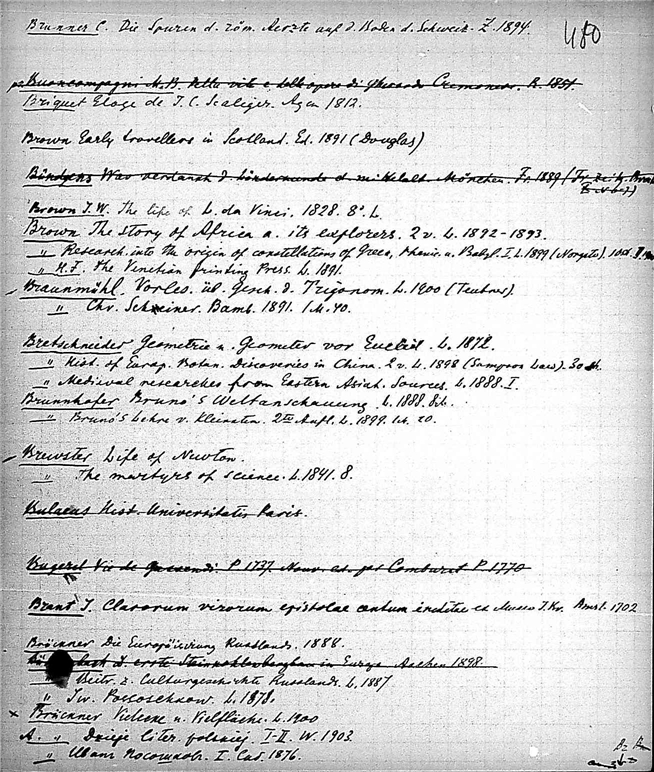 Brunner C. Die Spuren d. röm. Aerzte auf d. Boden d. Schweiz. Z. 1894.
480
Buoncompagni M. B. Della vita e delle opere di Gherardo Cremonese. R. 1851.
Briquet Eloge de J. C. Scaliger. Agen 1812.
Brown Early travellers in Scotland. Ed. 1891 (Douglas)
Büdgens Was verdankt d. Länderkunde d. Mittelalt. München. Fr. 1889
Brown J. W. The life of L. da Vinci. 1828. 8°. L.
Brown. The story of Africa a. its explorers. 2 v. L. 1892-1893.
„ Research. into the origin of constellations of Greco, Phenic. u. Babyl. I. L. 1899 (Norgate).
„ H. F. The Venetian printing Press. L. 1891.
Braunmühl. Vorles. üb. Gesch. d. Trigonom. L. 1900 (Teubner)
„ Chr. Scheiner. Bamb. 1891. 1 M. 40.
Bretschneider Geometrie u. Geometer vor Euclid. L. 1872.
„ Hist. of Europ. Botan. Discoveries in China. 2 v. L. 1898 (Sampson Law). 30 sh.
„ Medieval researches from Eastern Asiat. Sources. L. 1888. I.
Brunnhofer Bruno's Weltanschauung. L. 1888. 8 L.
„ Bruno's Lehre v. Kleinsten. 2te Aufl. L. 1899. 1 M. 20.
Brewster Life of Newton.
„ The martyrs of science. L. 1841. 8.
Bulaeus Hist. Universitatis Paris.
Bugerel Vie de Gassendi. P. 1737. Nouv. ed. P. 1770
Brant J. Clarorum virorum epistolae centum ineditae ex Museo J. Amst. 1702
Brückner Die Europäisierung Russlands. 1888.
erste Steinkohlenbergbau in Europa Aachen 1898.
Beitr. z. Culturgeschichte Russlands. L. 1887
„ Iw. Possoschkow. L. 1878.
× Brückner Vielecke u. Vielfläche. L. 1900
A. „ Dzieje liter. polskiej I-II. W. 1903.
„ Иван Посошков. I. Спб. 1876.